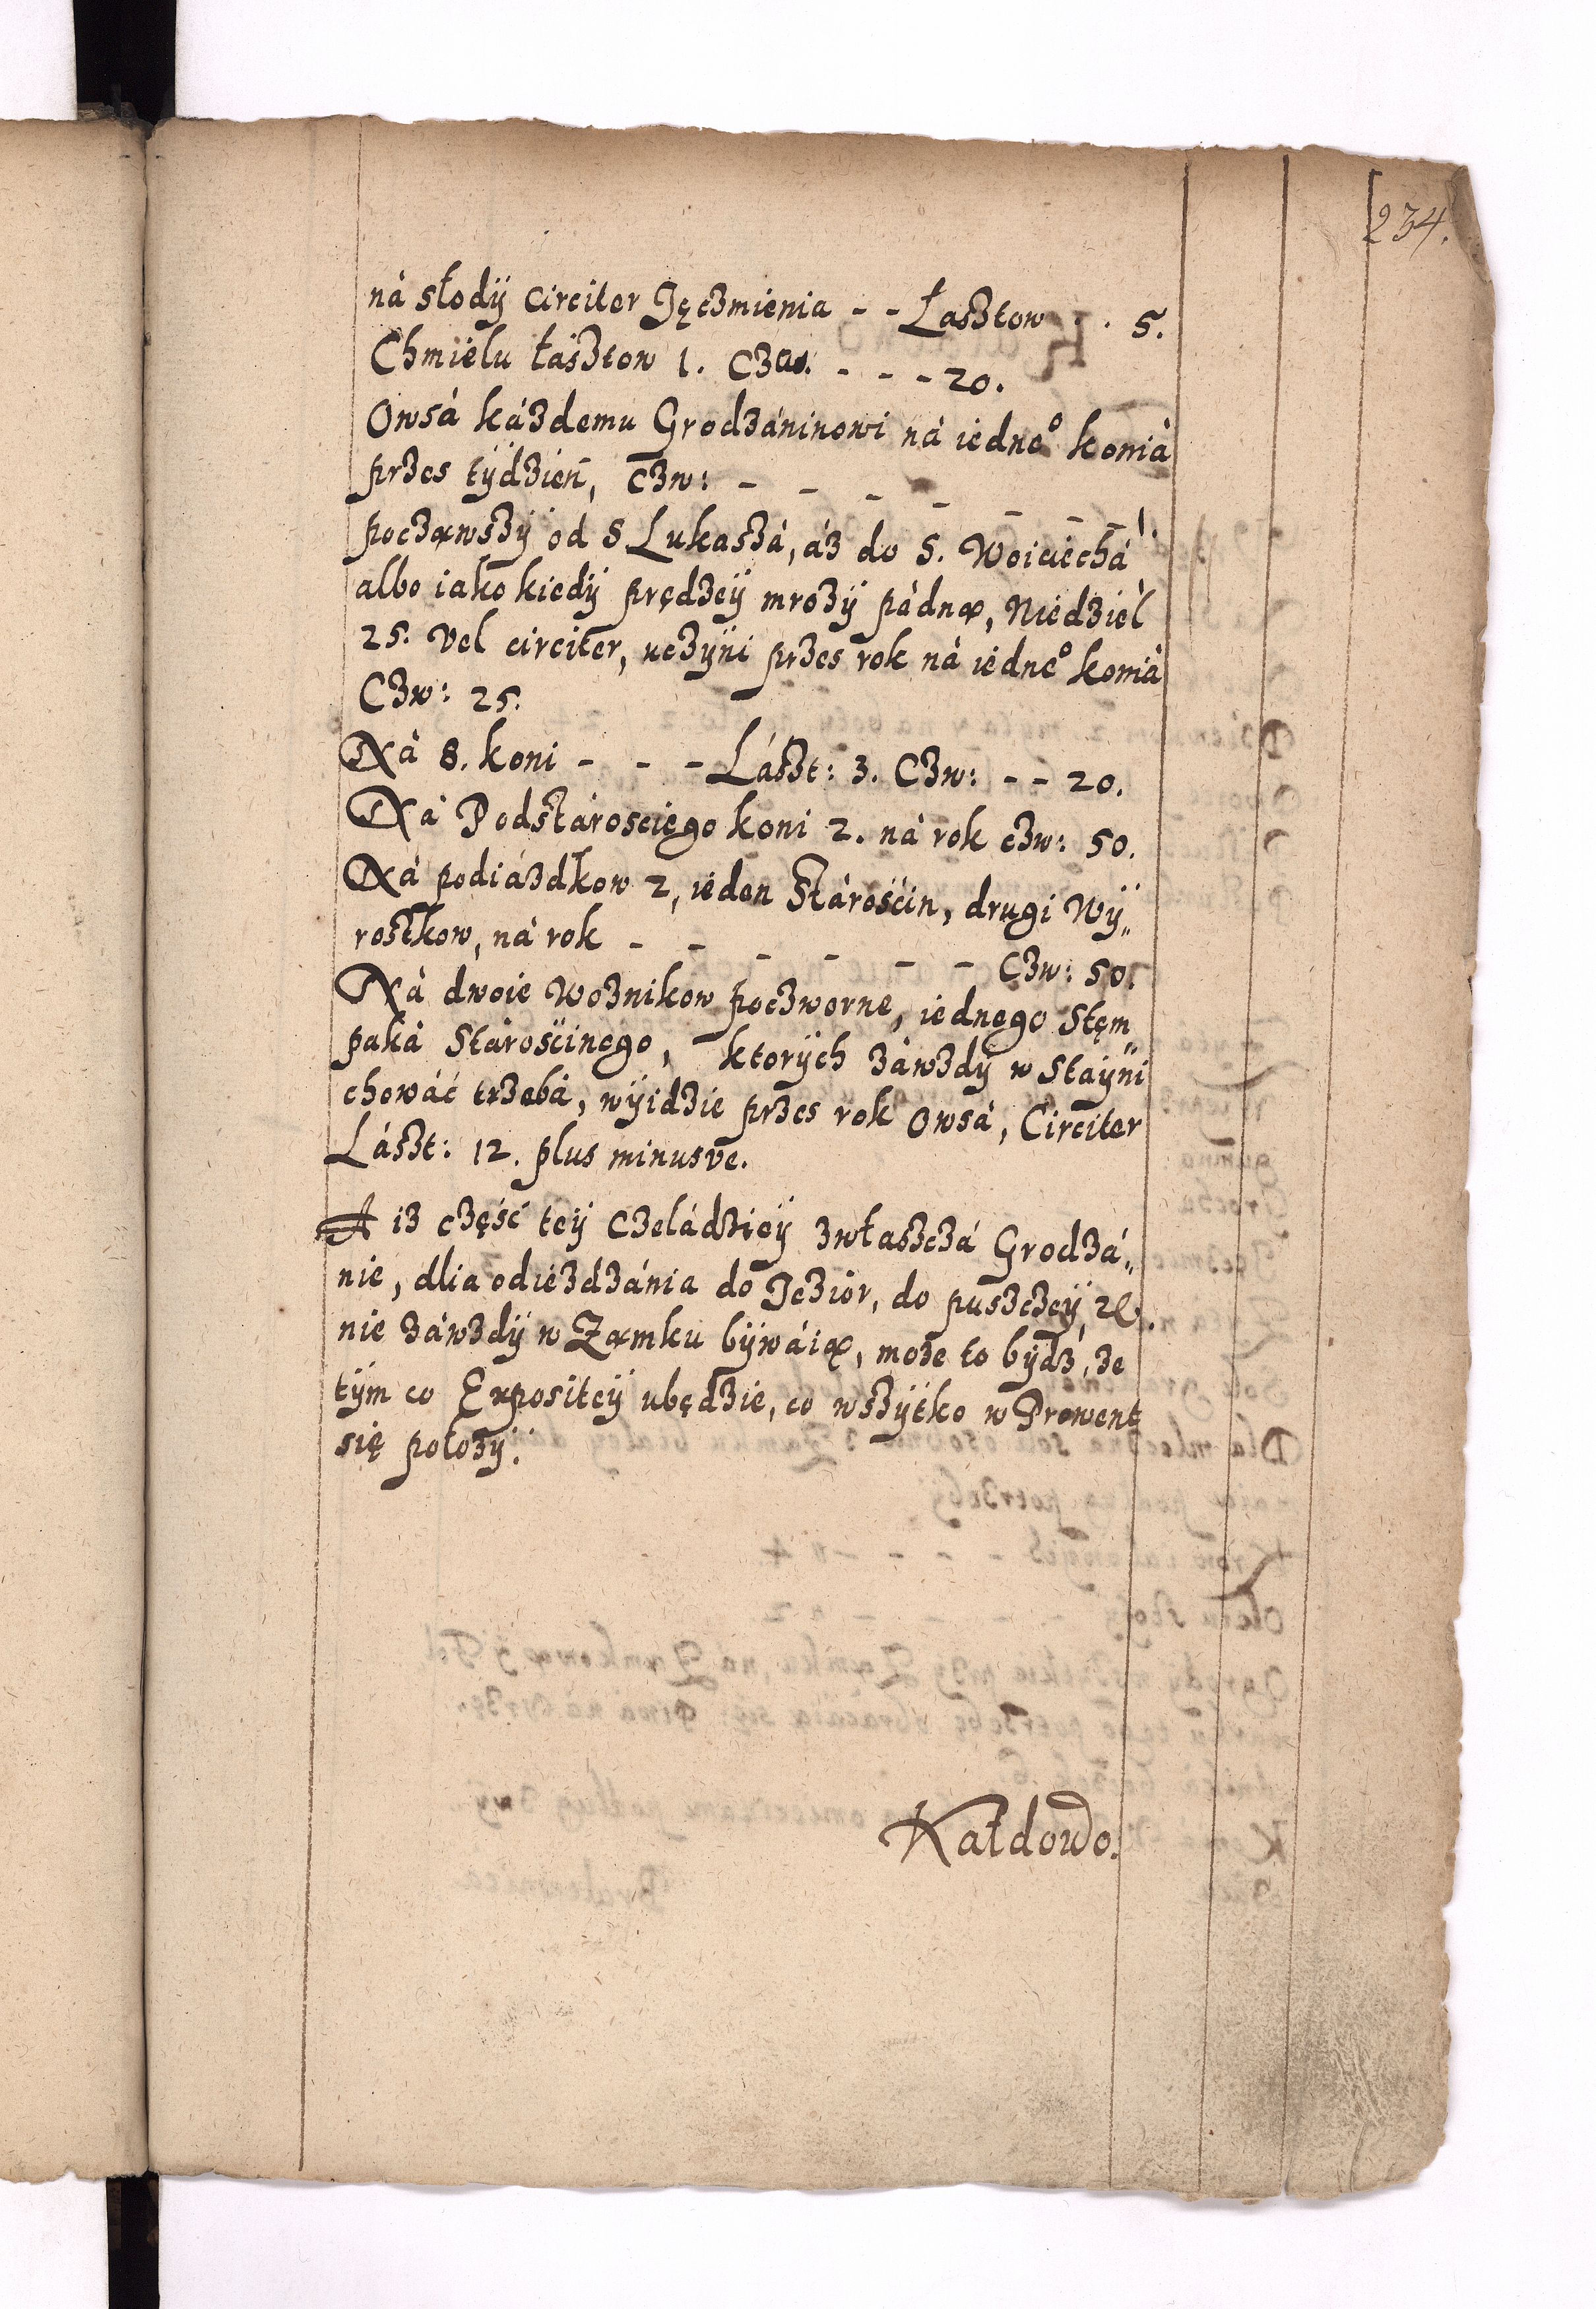 234.
ná słody circiter Jęczmienia - - Łasztow . . 5.
Chmielu łásztow 1. Czw. - - - 20.
Owsá káżdemu Grodzáninowi ná iedne° koniá
przes tydzień, czw: - - - - - - - 1.
począwszy od S Lukaszá, áż do S. Woiciechá
albo iako kiedy prędzey mrozy pádną, Niedziel
25. Vel circiter, uczyni przes rok ná iedne° koniá
Czw: 25.
Ná 8. koni - - - Lászt: 3. Czw: - - 20.
Ná Podstárosciego koni 2. ná rok czw: 50.
Ná podiázdkow 2, ieden Stárościn, drugi Wy„
rostkow, ná rok - - - - - - Czw: 50.
Ná dwoie Woznikow poczworne, iednego Stęm„
paká Stárościnego, ktorych záwzdy w Stayni
chowáć trzebá, wyidzie przes rok Owsá, Circiter
Lászt: 12. plus minusve.
A iż część tey Czeládziey zwłaszczá Grodzá„
nie, dlia odieżdżánia do Jezior, do puszczey, &.
nie záwzdy w Zamku bywáią, może to bydź, że
tym co Expositey ubędzie, co wszytko w Prowent
się położy.
Kałdowo.